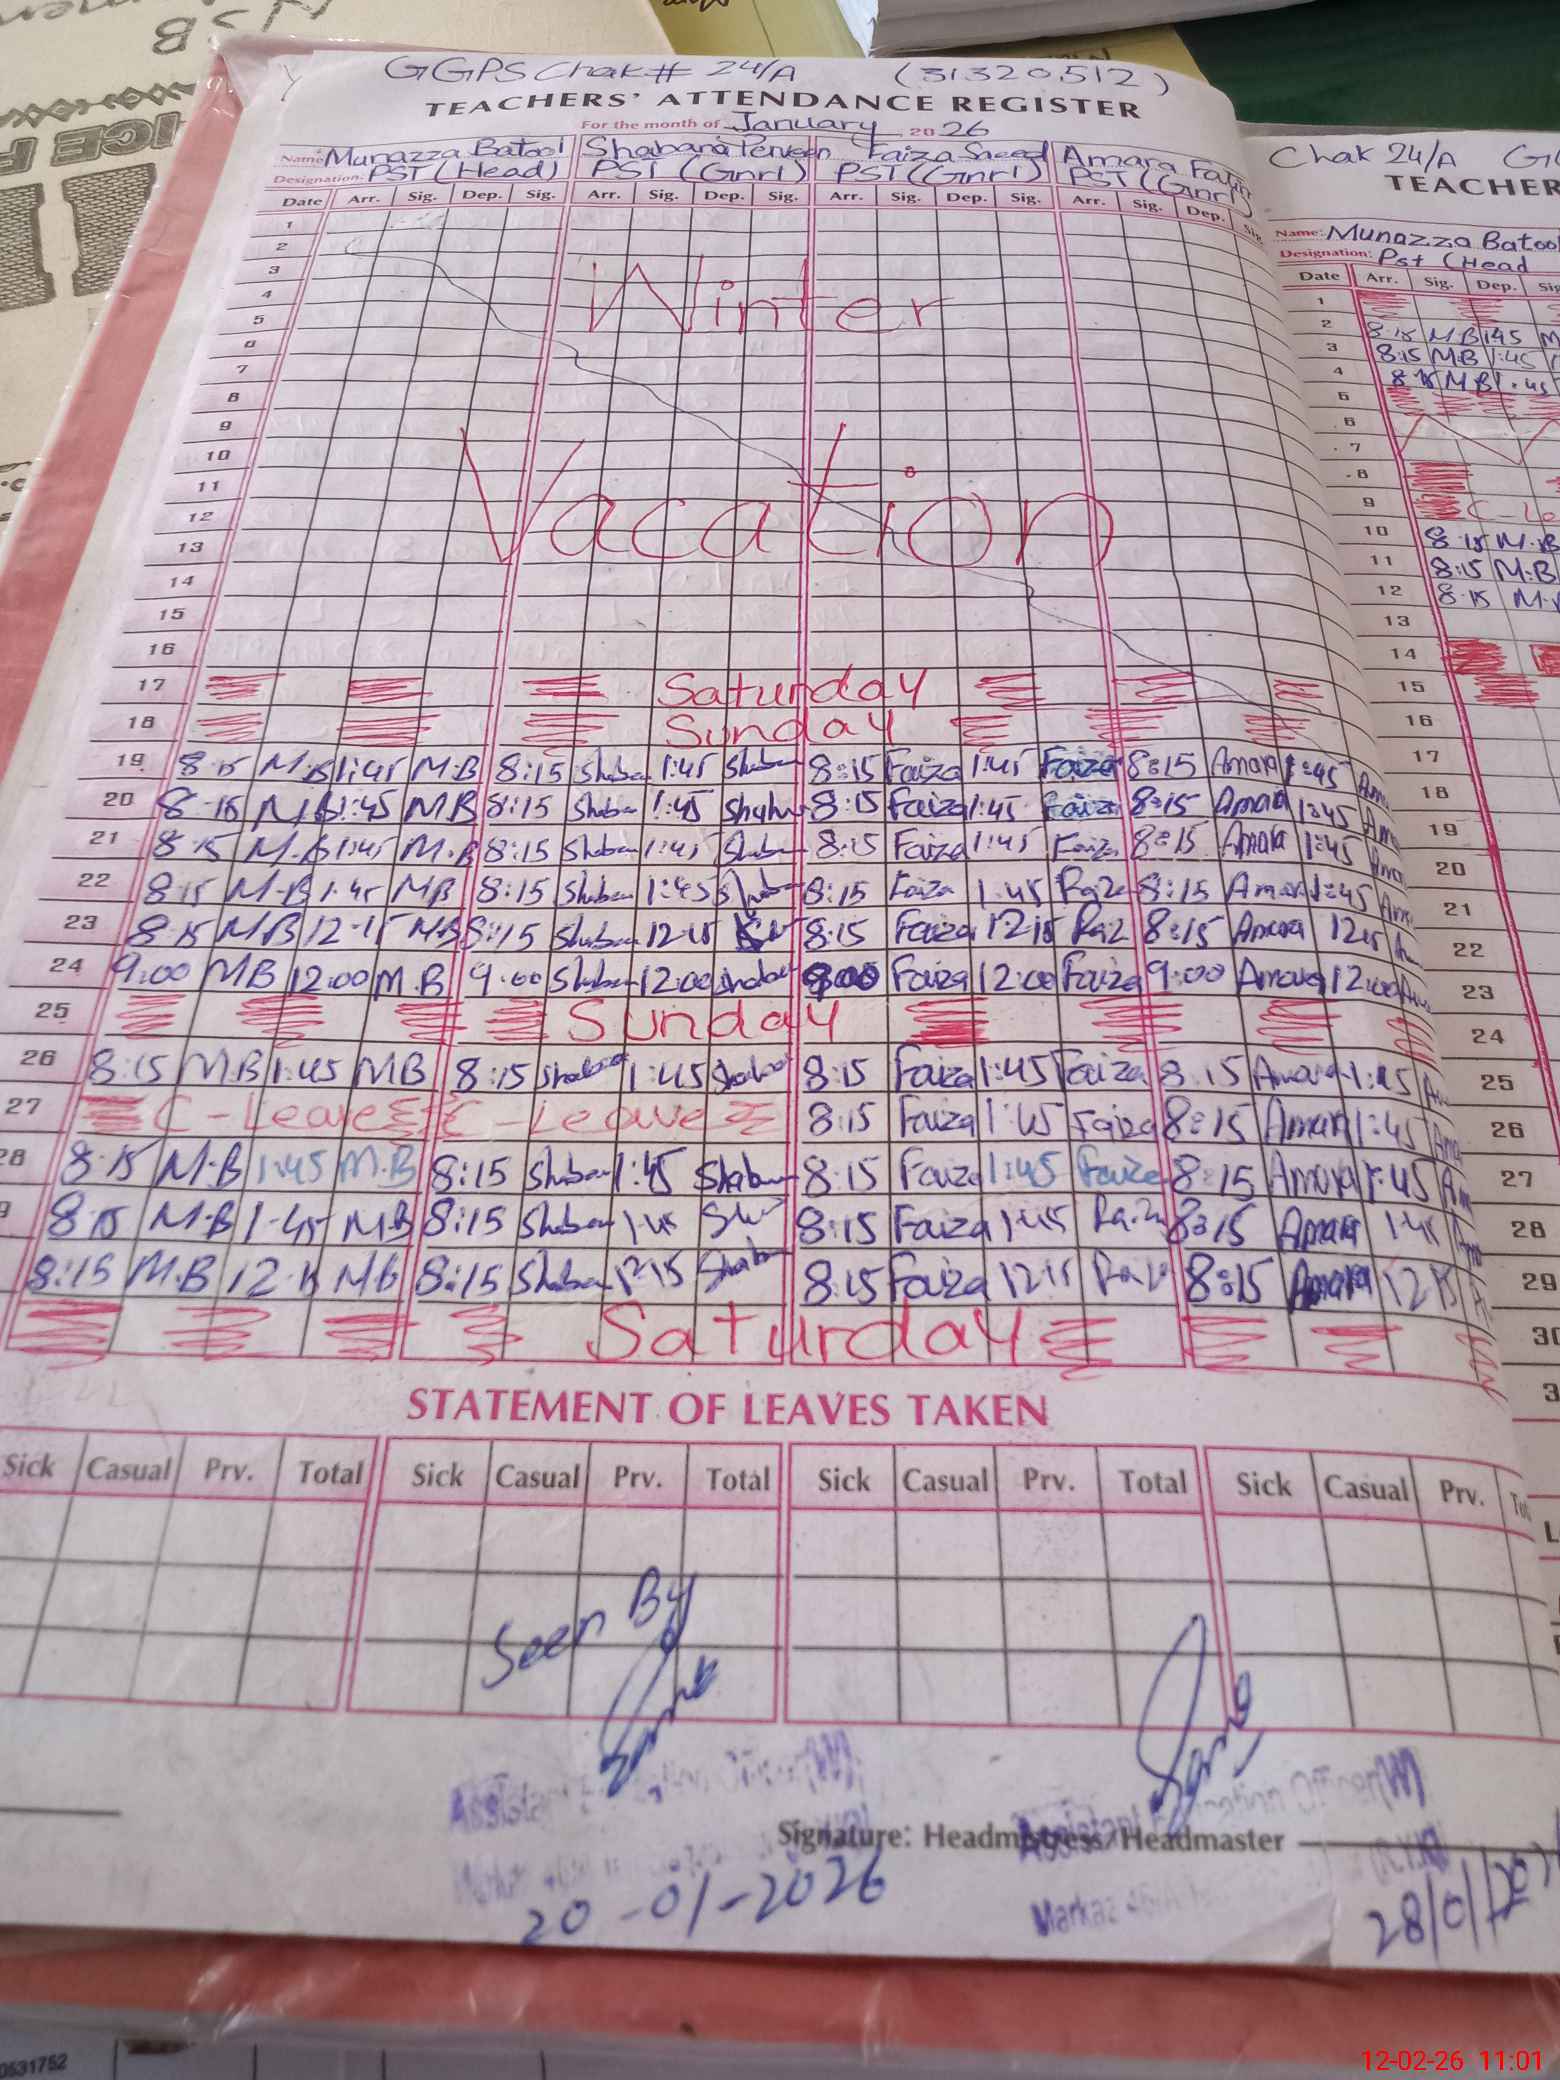 GGPS Chak# 24/A (31320512)
TEACHERS' ATTENDANCE REGISTER
For the month of January 2026
Name: Munazza Batool Shabana Perveen Faiza Saeed Amara
Designation: PST (Head) PST (Gnrl) PST (Gnrl) PST (Gnrl)
Date Arr. Sig. Dep. Sig. Arr. Sig. Dep. Sig. Arr. Sig. Dep. Sig. Arr. Sig. Dep. Sig.
1
2
3
4
Winter
5
6
7
8
9
10
11
Vacation
12
13
14
15
16
17 Saturday
18 Sunday
19 8:15 M.B 1:45 M.B 8:15 Shaban 1:45 Shaban 8:15 Faiza 1:45 Faiza 8:15 Amara 1:45
20 8:15 M.B 1:45 MB 8:15 Shaban 1:45 8:15 Faiza 1:45 Faiza 8:15 Amara 1:45
21 8:15 M.B 1:45 M.B 8:15 Shaban 1:45 Shaban 8:15 Faiza 1:45 Faiza 8:15 Amara 1:45
22 8:15 M-B 1:45 MB 8:15 Shaban 1:45 8:15 Faiza 1:45 8:15 Amara 1:45
23 8:15 MB 12:15 MB 8:15 Shaban 12:15 8:15 Faiza 12:15 8:15 Amara 12:15
24 9:00 MB 12:00 M.B 9:00 Shaban 12:00 9:00 Faiza 12:00 Faiza 9:00 Amara 12:00
25 Sunday
26 8:15 MB 1:45 MB 8:15 1:45 8:15 Faiza 1:45 Faiza 8:15 Amara 1:45
27 C-Leave C-Leave 8:15 Faiza 1:45 Faiza 8:15 Amara 1:45
28 8:15 M.B 1:45 M.B 8:15 Shaban 1:45 Shaban 8:15 Faiza 1:45 Faiza 8:15 Amara 1:45
9 8:15 M.B 1:45 M.B 8:15 Shaban 1:45 8:15 Faiza 1:45 8:15 Amara 1:45
8:15 M.B 12:15 MB 8:15 Shaban 12:15 Shaban 8:15 Faiza 12:15 8:15 Amara 12:15
Saturday
STATEMENT OF LEAVES TAKEN
Sick Casual Prv. Total Sick Casual Prv. Total Sick Casual Prv. Total Sick Casual Prv.
Seen By
Signature: Headmistress/Headmaster
Assistant
Markaz
20-01-2026
28/01/
Chak 24/A
TEACHER
Name: Munazza Batool
Designation: Pst (Head
Date Arr. Sig. Dep.
1
2 8:15 MB 1:45
3 8:15 M.B 1:45
4 8:15 M.B 1:45
5
6
7
8
9 C-Le
10 8:15 M.B
11 8:15 M.B
12 8:15 M.
13
14
15
16
17
18
19
20
21
22
23
24
25
26
27
28
29
30
3
0531752
12-02-26 11:01